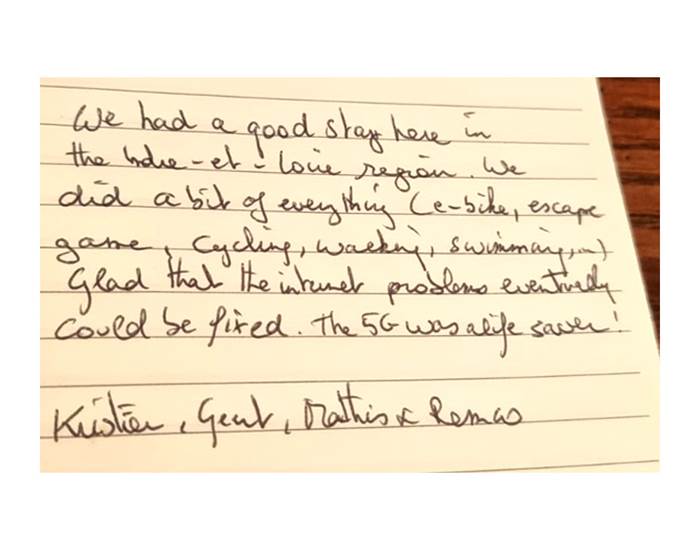 We had a good stay here in
the Indre-et-Loire region. We
did a bit of everything (e-bike, escape
game, cycling, walking, swimming,...)
Glad that the internet problems eventually
could be fixed. The 5G was a life saver!
Kristien, Geert, Mathis & Remco